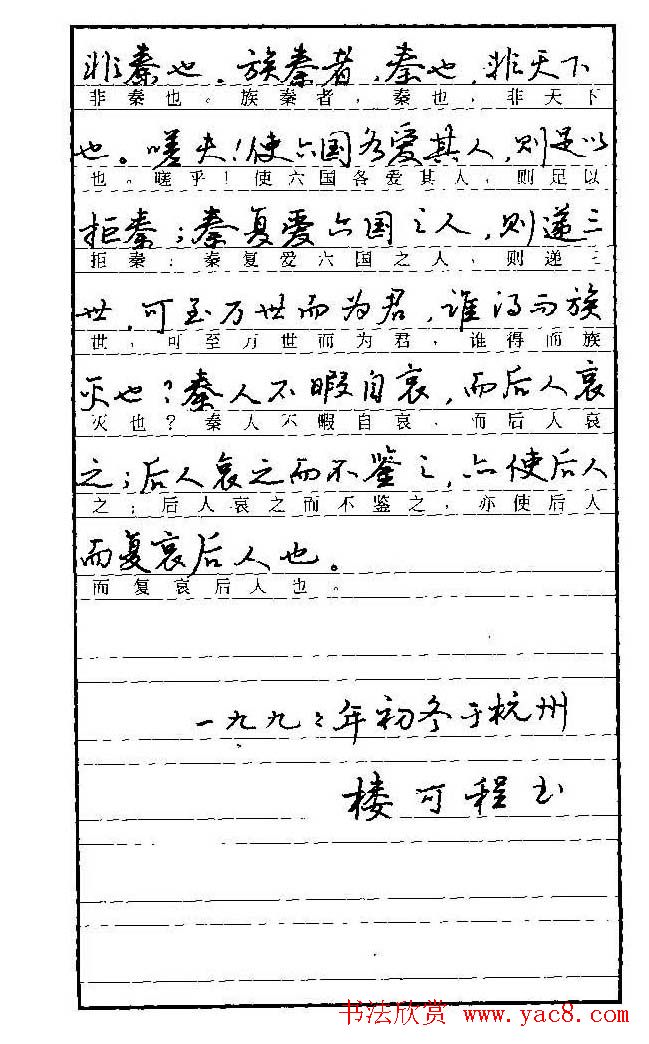 非秦也。族秦者，秦也，非天下
非秦也。族秦者，秦也，非天下
也。嗟夫！使六国各爱其人，则足以
也。嗟乎！使六国各爱其人，则足以
拒秦；秦复爱六国之人，则递三
拒秦；秦复爱六国之人，则递三
世，可至万世而为君，谁得而族
世，可至万世而为君，谁得而族
灭也？秦人不暇自哀，而后人哀
灭也？秦人不暇自哀，而后人哀
之；后人哀之而不鉴之，亦使后人
之；后人哀之而不鉴之，亦使后人
而复哀后人也。
而复哀后人也。
一九九二年初冬于杭州
楼可程书
书法欣赏 www.yac8.com